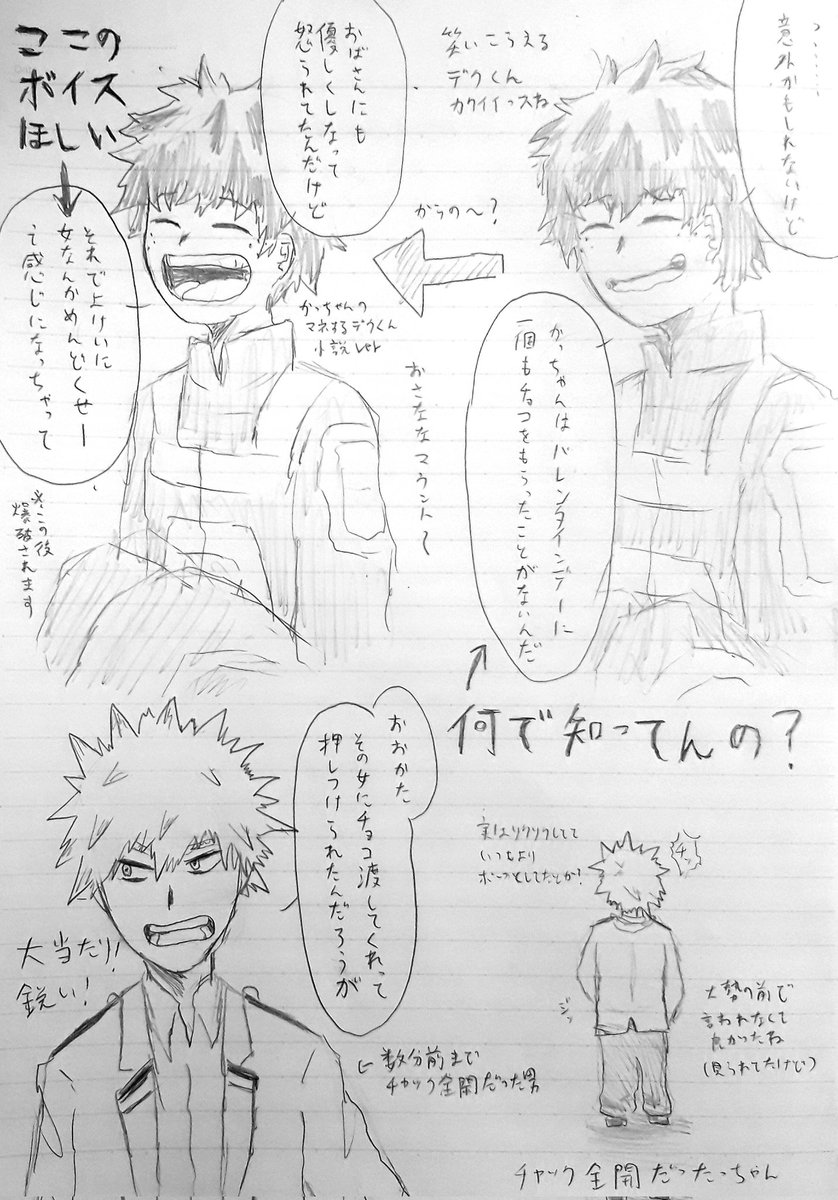 ……
意外かもしれないけど
笑いこらえる
デクくん
カワイイっスね
かっちゃんはバレンタインデーに
一個もチョコをもらったことがないんだ
何で知ってんの？
からの〜？
おばさんにも
優しくしなって
怒られてたんだけど
ここの
ボイス
ほしい
それでよけいに
女なんかめんどくせー
て感じになっちゃって
かっちゃんの
マネするデクくん
おさななマウント〜
※この後
爆破されます
おおかた
その女にチョコ渡してくれって
押しつけられたんだろうが
大当だり!
鋭い!
数分前まで
チャック全開だった男
いつもより
ボーっとしてたとか?
チッ
ジッ
大勢の前で
言われなくて
良かったね
(見られてたけど)
チャック全開だったっちゃん